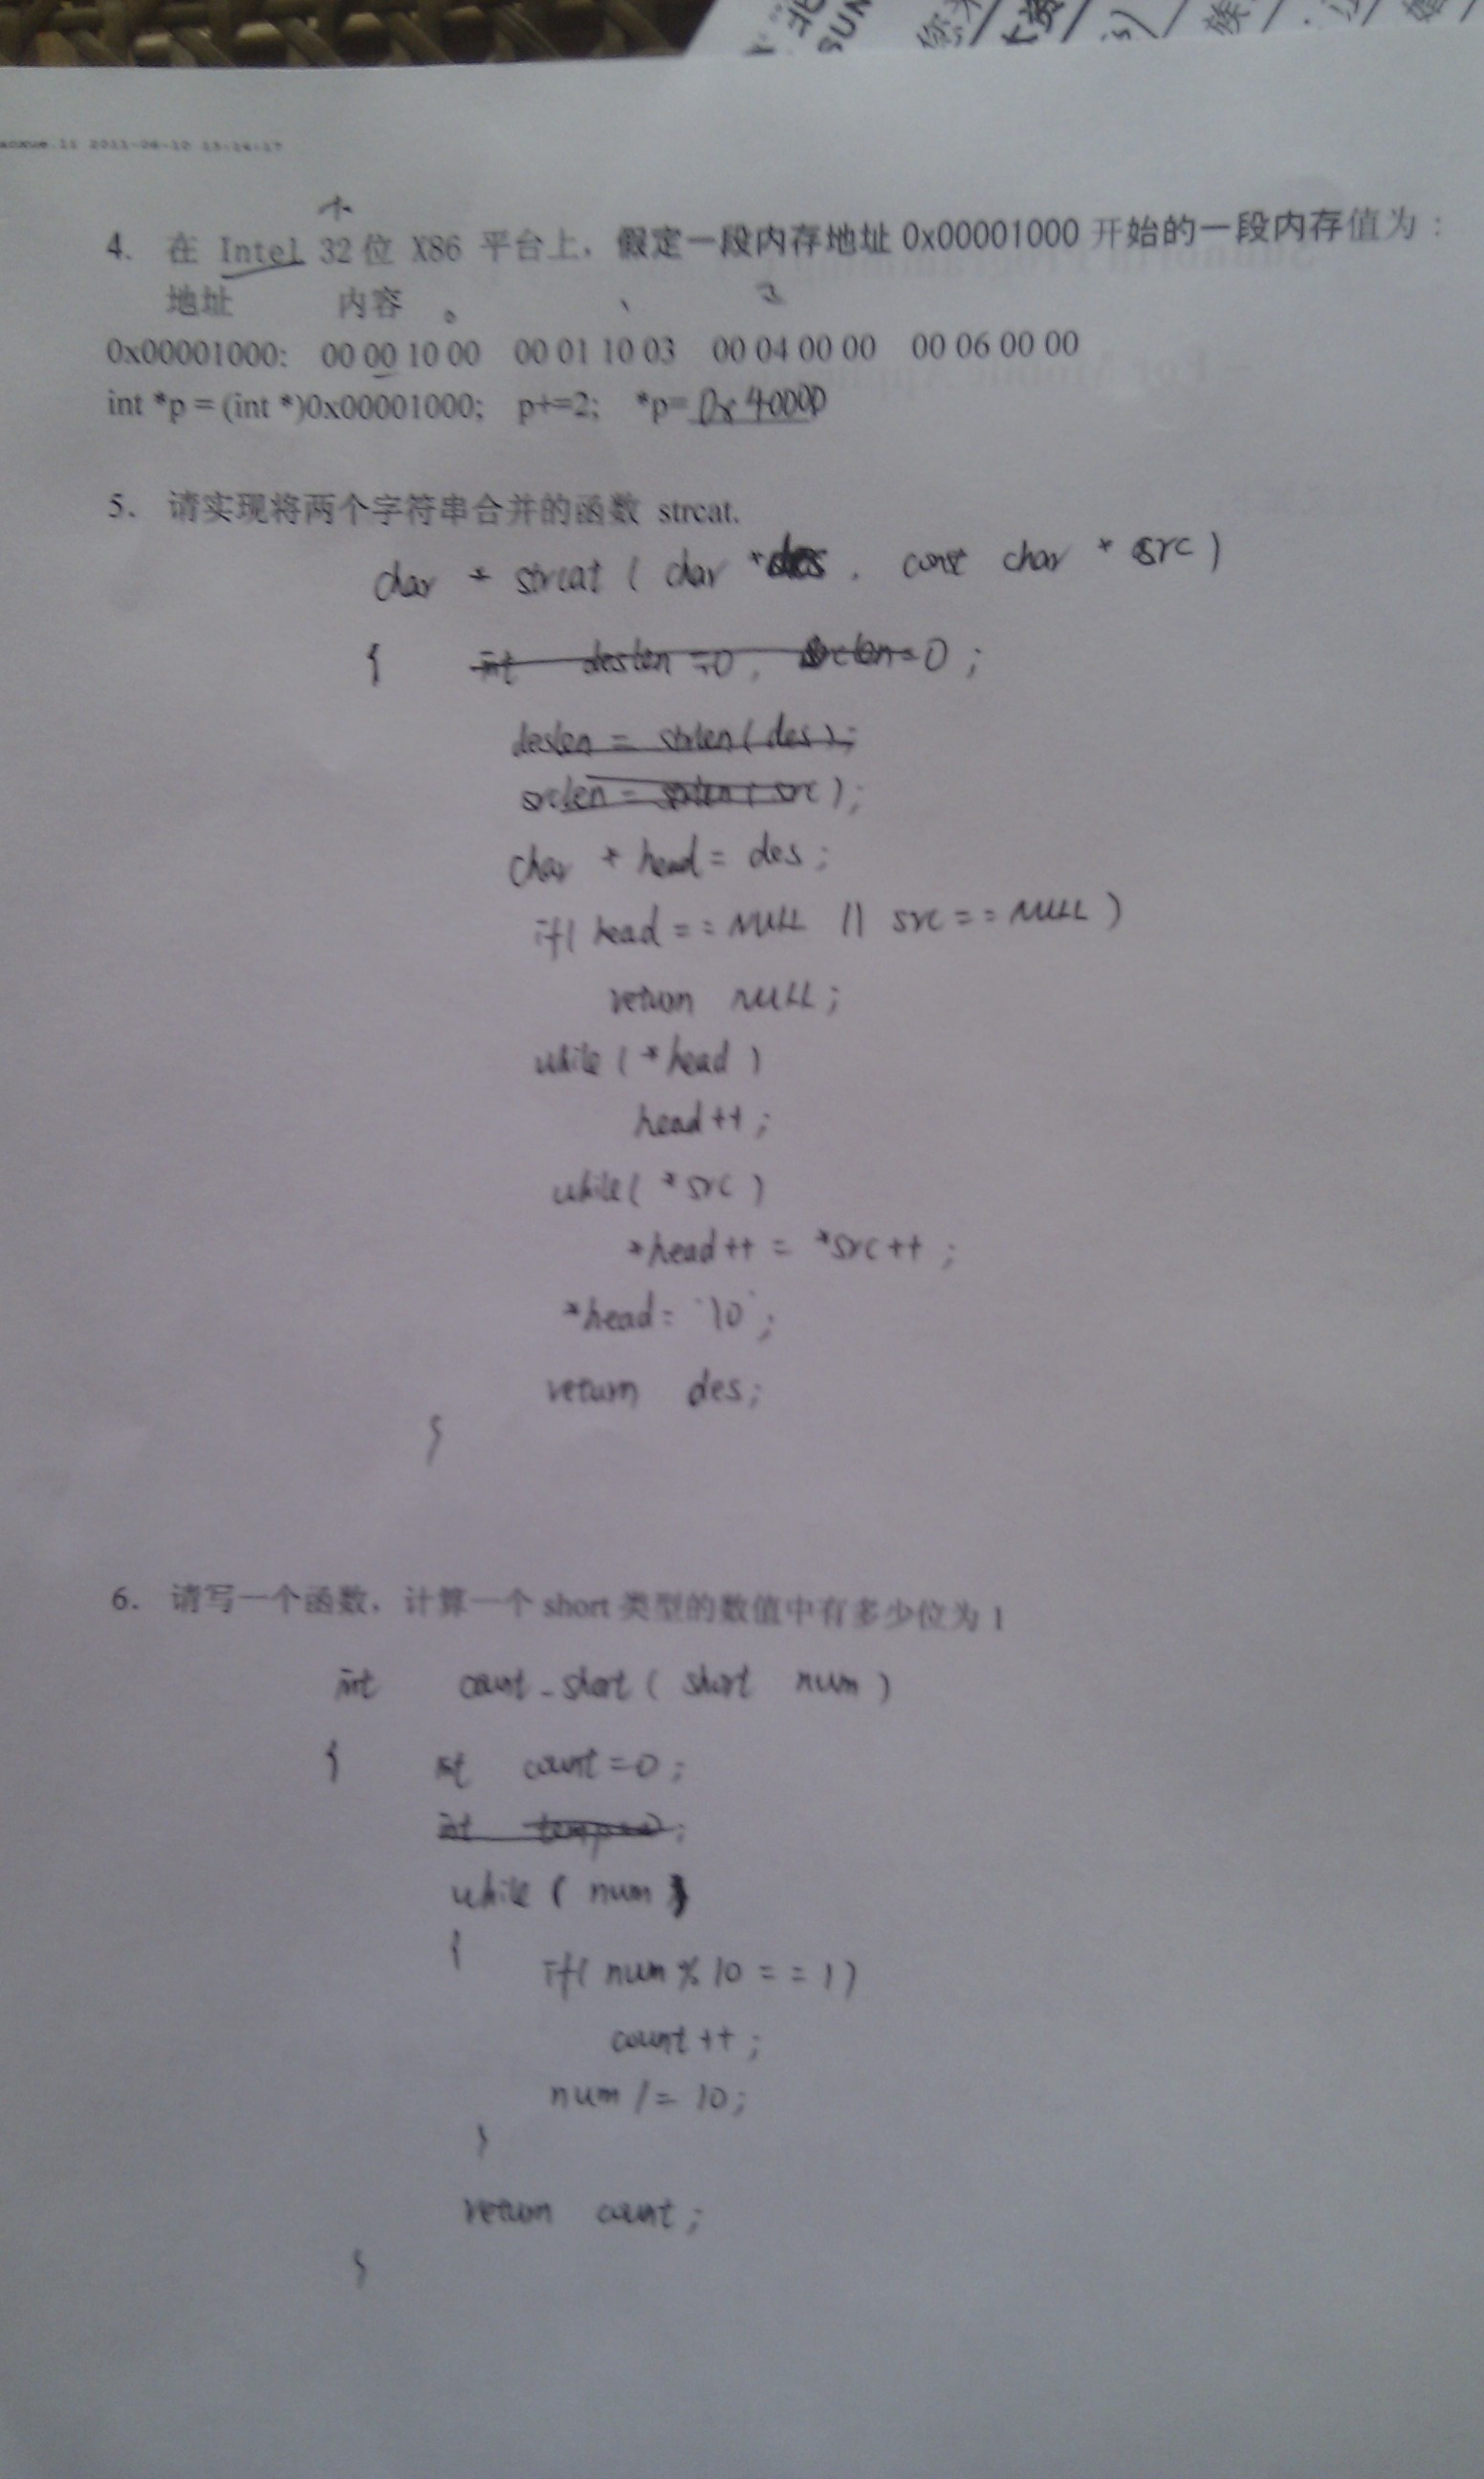 SUN
2011-06-10 13:14:17
4. 在 Intel 32位 X86 平台上，假定一段内存地址 0x00001000 开始的一段内存值为：
地址 内容
0x00001000: 00 00 10 00 00 01 10 03 00 04 00 00 00 06 00 00
int *p = (int *)0x00001000; p+=2; *p= 0x40000
5. 请实现将两个字符串合并的函数 strcat.
char * strcat ( char *des, const char * src )
{ int deslen =0, srclen=0 ;
deslen = strlen( des );
srclen = strlen( src );
char * head = des ;
if( head == NULL || src == NULL )
return NULL ;
while ( *head )
head ++ ;
while( *src )
*head ++ = *src ++ ;
*head = '\0' ;
return des ;
}
6. 请写一个函数，计算一个 short 类型的数值中有多少位为 1
int count_short ( short num )
{ int count =0 ;
int temp=0 ;
while ( num )
{ if( num % 10 == 1 )
count ++ ;
num /= 10 ;
}
return count ;
}